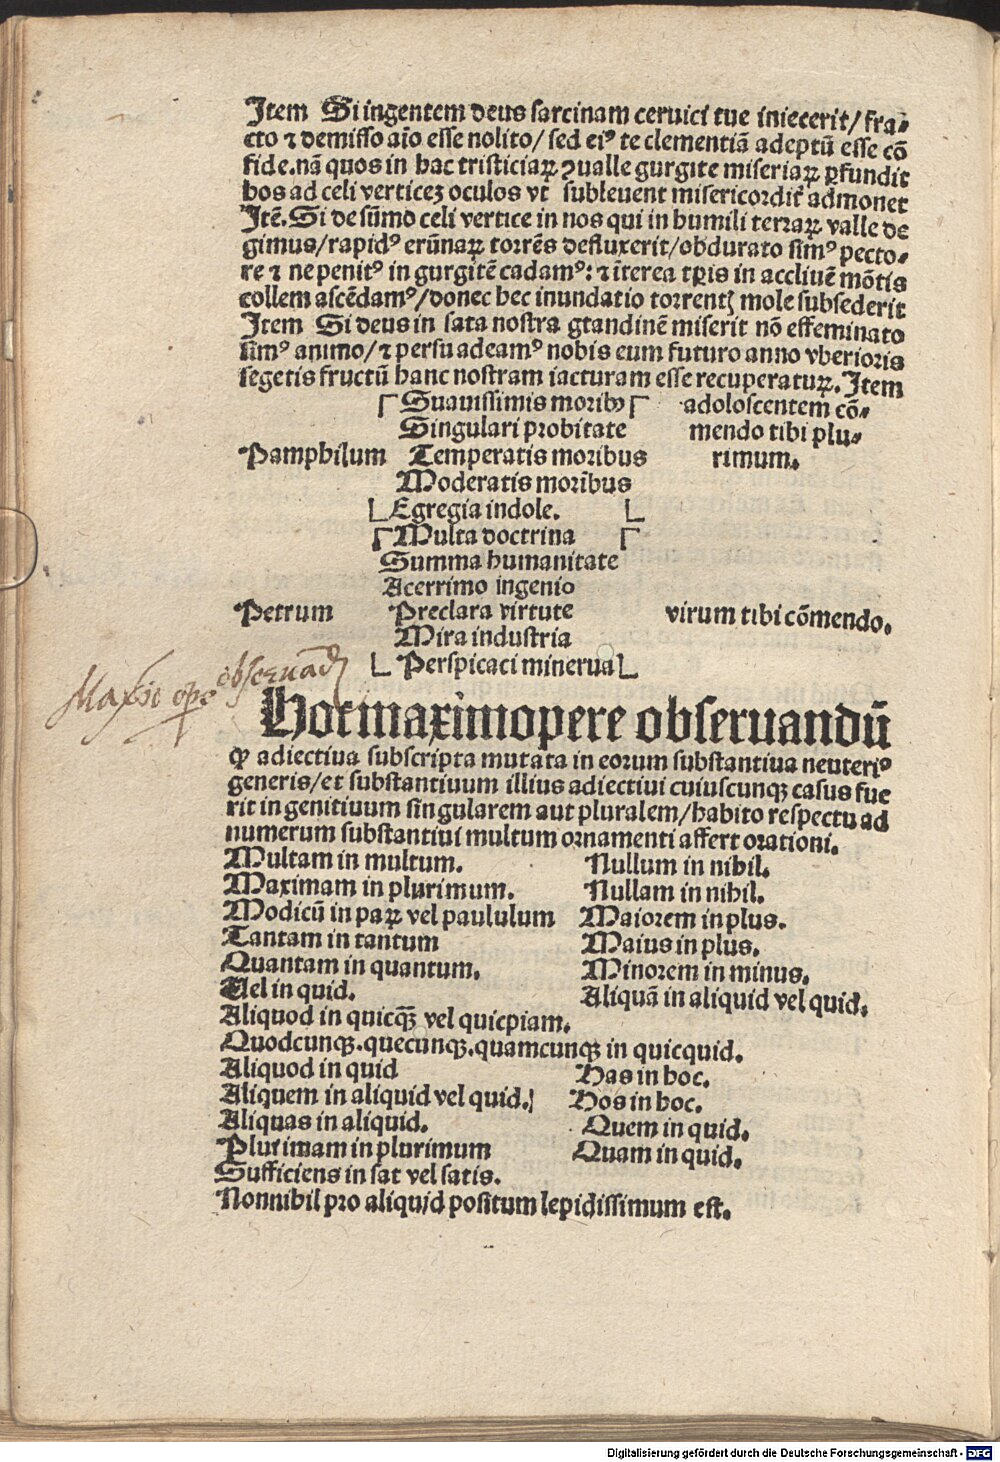 Item Si ingentem deus sarcinam ceruici tue iniecerit/ fra⸗
cto ⁊ demisso aĩo esse nolito/ sed eiꝰ te clementiã adeptũ esse cõ
fide. nã quos in hac tristiciaꝝ ꝯualle gurgite miseriaꝝ ꝑfundit
hos ad celi verticeʒ oculos vt subleuent misericordit̾ admonet
Itẽ. Si de sũmo celi vertice in nos qui in humili terraꝝ valle de
gimus/ rapidꝰ erũnaꝝ torrẽs defluxerit/ obdurato simꝰ pecto⸗
re ⁊ ne penitꝰ in gurgitẽ cadamꝰ: ⁊ ĩterea tꝑis in accliuẽ mõtis
collem ascẽdamꝰ/ donec hec inundatio torrentꝭ mole subsederit
Item Si deus in sata nostra gtandinẽ miserit nõ effeminato
simꝰ animo/ ⁊ persuadeamꝰ nobis eum futuro anno vberioris
segetis fructũ hanc nostram iacturam esse recuperatuꝝ. Item
Suauissimis moribꝰ adoloscentem cõ⸗
Singulari probitate mendo tibi plu⸗
Pamphilum Temperatis moribus rimum.
Moderatis moribus
Egregia indole.
Multa doctrina
Summa humanitate
Acerrimo ingenio
Petrum Preclara virtute virum tibi cõmendo.
Mira industria
Perspicaci minerua
Maxĩo oꝑe obseruãdꝭ
Hoc maximopere obseruandũ
ꝙ adiectiua subscripta mutata in eorum substantiua neuteriꝰ
generis/ et substantiuum illius adiectiui cuiuscunqꝫ casus fue
rit in genitiuum singularem aut pluralem/ habito respectu ad
numerum substantiui multum ornamenti affert orationi.
Multam in multum. Nullum in nihil.
Maximam in plurimum. Nullam in nihil.
Modicũ in paꝝ vel paululum Maiorem in plus.
Tantam in tantum Maius in plus.
Quantam in quantum. Minorem in minus.
Uel in quid. Aliquã in aliquid vel quid.
Aliquod in quicqꝫ̃ vel quicpiam.
Quodcunqꝫ. quecunqꝫ. quamcunqꝫ in quicquid.
Aliquod in quid Has in hoc.
Aliquem in aliquid vel quid. Hos in hoc.
Aliquas in aliquid. Quem in quid.
Plurimam in plurimum Quam in quid.
Sufficiens in sat vel satis.
Nonnihil pro aliquid positum lepidissimum est.
Digitalisierung gefördert durch die Deutsche Forschungsgemeinschaft - DFG